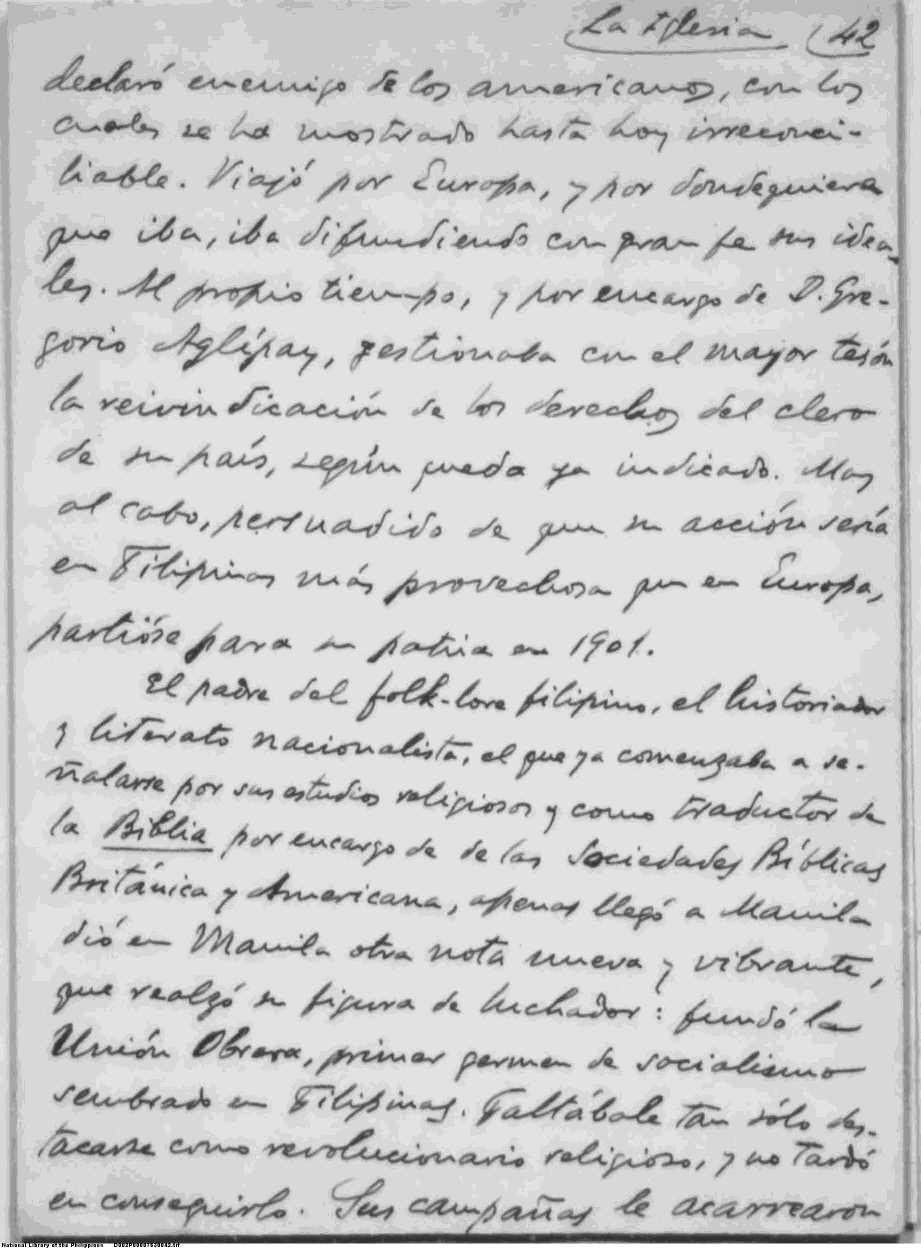 La Iglesia 42
declaró enemigo de los americanos, con los
cuales se ha mostrado hasta hoy irreconci-
liable. Viajó por Europa, y por dondequiera
que iba, iba difundiendo con gran fe sus idea-
les. Al propio tiempo, y por encargo de D. Gre-
gorio Aglípay, gestionaba con el mayor tesón
la reivindicación de los derechos del clero
de su país, según queda ya indicado. Mas
al cabo, persuadido de que su acción sería
en Filipinas más provechosa que en Europa,
partióse para su patria en 1901.
El padre del folk-lore filipino, el historiador
y literato nacionalista, el que ya comenzaba a se-
ñalarse por sus estudios religiosos y como traductor de
la Biblia por encargo de de las Sociedades Bíblicas
Británica y Americana, apenas llegó a Manila
dió en Manila otra nota nueva y vibrante,
que realzó su figura de luchador: fundó la
Unión Obrera, primer germen de socialismo
sembrado en Filipinas. Faltábale tan sólo des-
tacarse como revolucionario religioso, y no tardó
en conseguirlo. Sus campañas le acarrearon
National Library of the Philippines